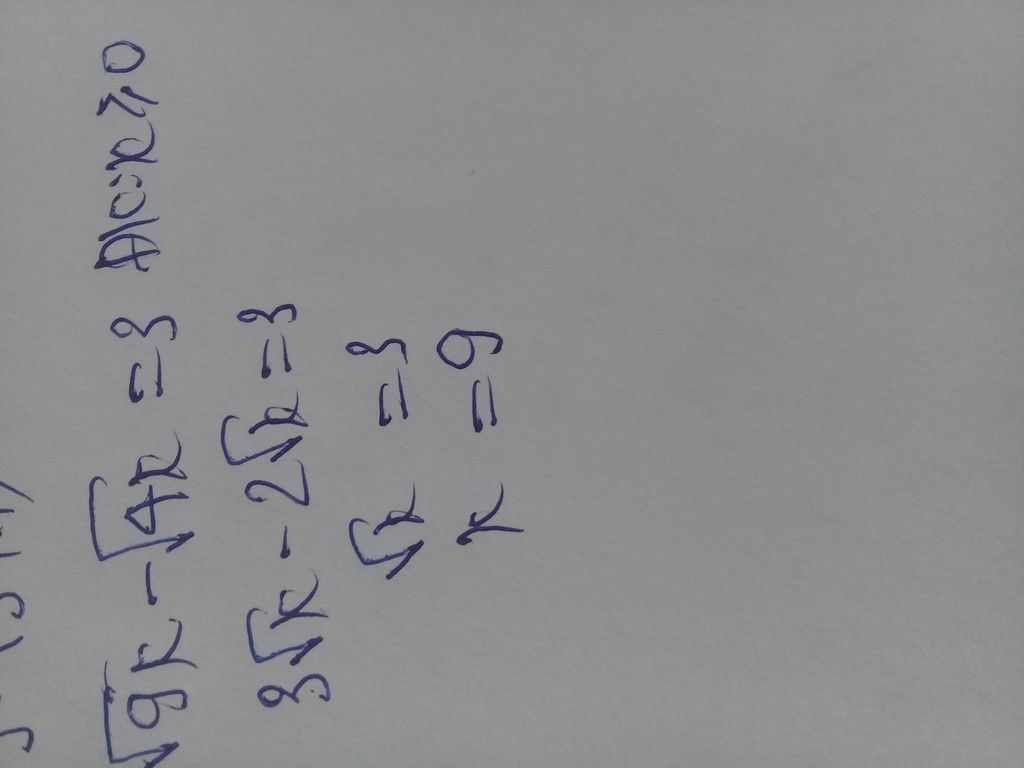 √9x - √4x = 3 ĐK: x ≥ 0
3√x - 2√x = 3
√x = 3
x = 9